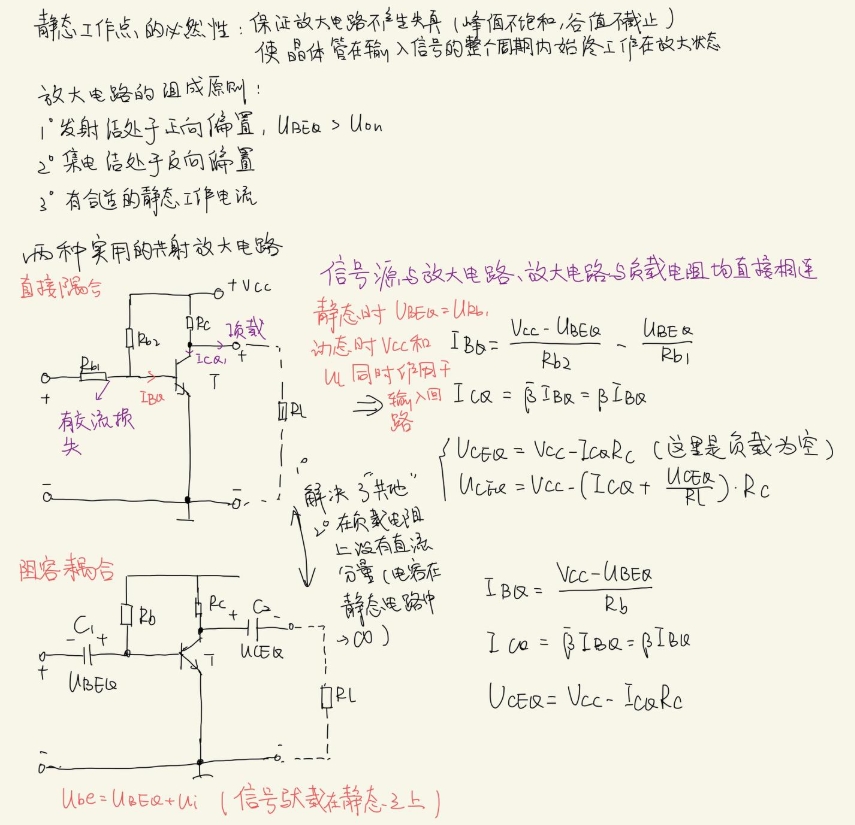 静态工作点的必然性：保证放大电路不产生失真（峰值不饱和，谷值不截止）
使晶体管在输入信号的整个周期内始终工作在放大状态
放大电路的组成原则：
1° 发射结处于正向偏置，UBEQ > Uon
2° 集电结处于反向偏置
3° 有合适的静态工作电流
两种实用的共射放大电路
直接耦合
信号源与放大电路、放大电路与负载电阻均直接相连
+Vcc
Rc
负载
Rb2
Rb1
ICQ
+
+
IBQ
T
RL
有交流损失
-
-
静态时 UBEQ=URb1
动态时Vcc和
Ui同时作用于
输入回路
IBQ = (Vcc - UBEQ)/Rb2 - UBEQ/Rb1
⇒ ICQ = β̄IBQ = βIBQ
UCEQ = Vcc - ICQRc （这里是负载为空）
UCEQ = Vcc - (ICQ + UCEQ/RL)·Rc
1° 解决了“共地”
2° 在负载电阻
上没有直流
分量（电容在
静态电路中
→∞）
阻容耦合
C1
- +
Rb
Rc
C2
+ -
UCEQ
UBEQ
T
RL
+
-
-
IBQ = (Vcc - UBEQ)/Rb
ICQ = β̄IBQ = βIBQ
UCEQ = Vcc - ICQRc
Ube = UBEQ + Ui （信号驮载在静态之上）